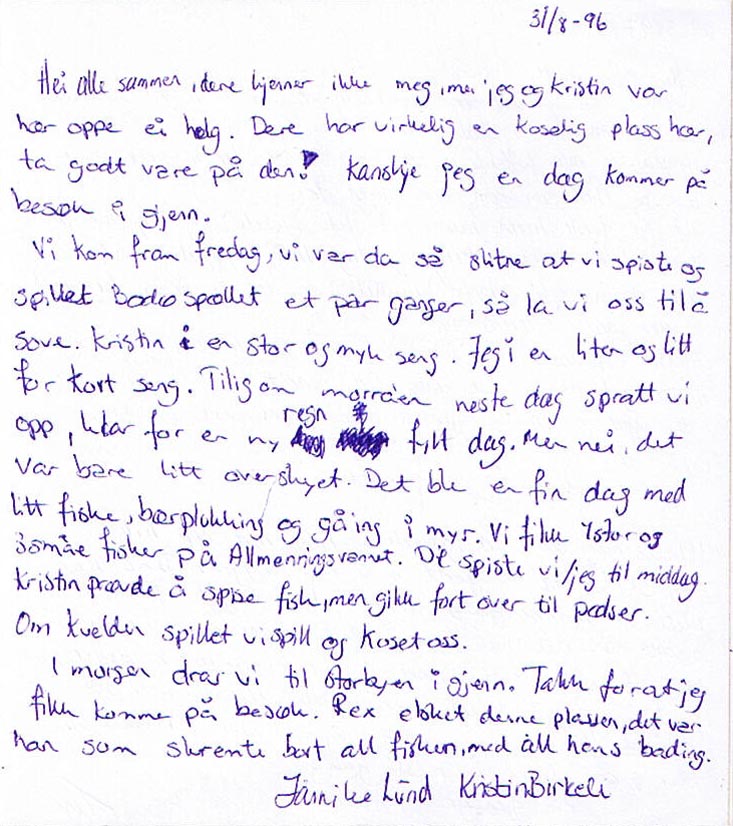 31/8-96
Hei alle sammen, dere kjenner ikke meg, men jeg og Kristin var
her oppe ei helg. Dere har virkelig en koselig plass her,
ta godt vare på den! Kanskje jeg en dag kommer på
besøk i gjenn.
Vi kom fram fredag, vi var da så slitne at vi spiste og
spillet Bodøspellet et par ganger, så la vi oss til å
sove. Kristin i en stor og myk seng. Jeg i en liten og litt
for kort seng. Tilig om morran neste dag spratt vi
opp, klar for en ny regn fylt dag. Men nei, det
var bare litt overskyet. Det ble en fin dag med
litt fiske, bærplukking og gåing i myr. Vi fikk 1 stor og
3 små fisker på Allmenningsvannet. De spiste vi/jeg til middag.
Kristin prøvde å spise fisk, men gikk fort over til pølser.
Om kvelden spillet vi spill og koset oss.
I morgen drar vi til storbyen i gjenn. Takk for at jeg
fikk komme på besøk. Rex elsket denne plassen, det var
han som skremte bort all fisken, med all hans bading.
Jannike Lund Kristin Birkeli